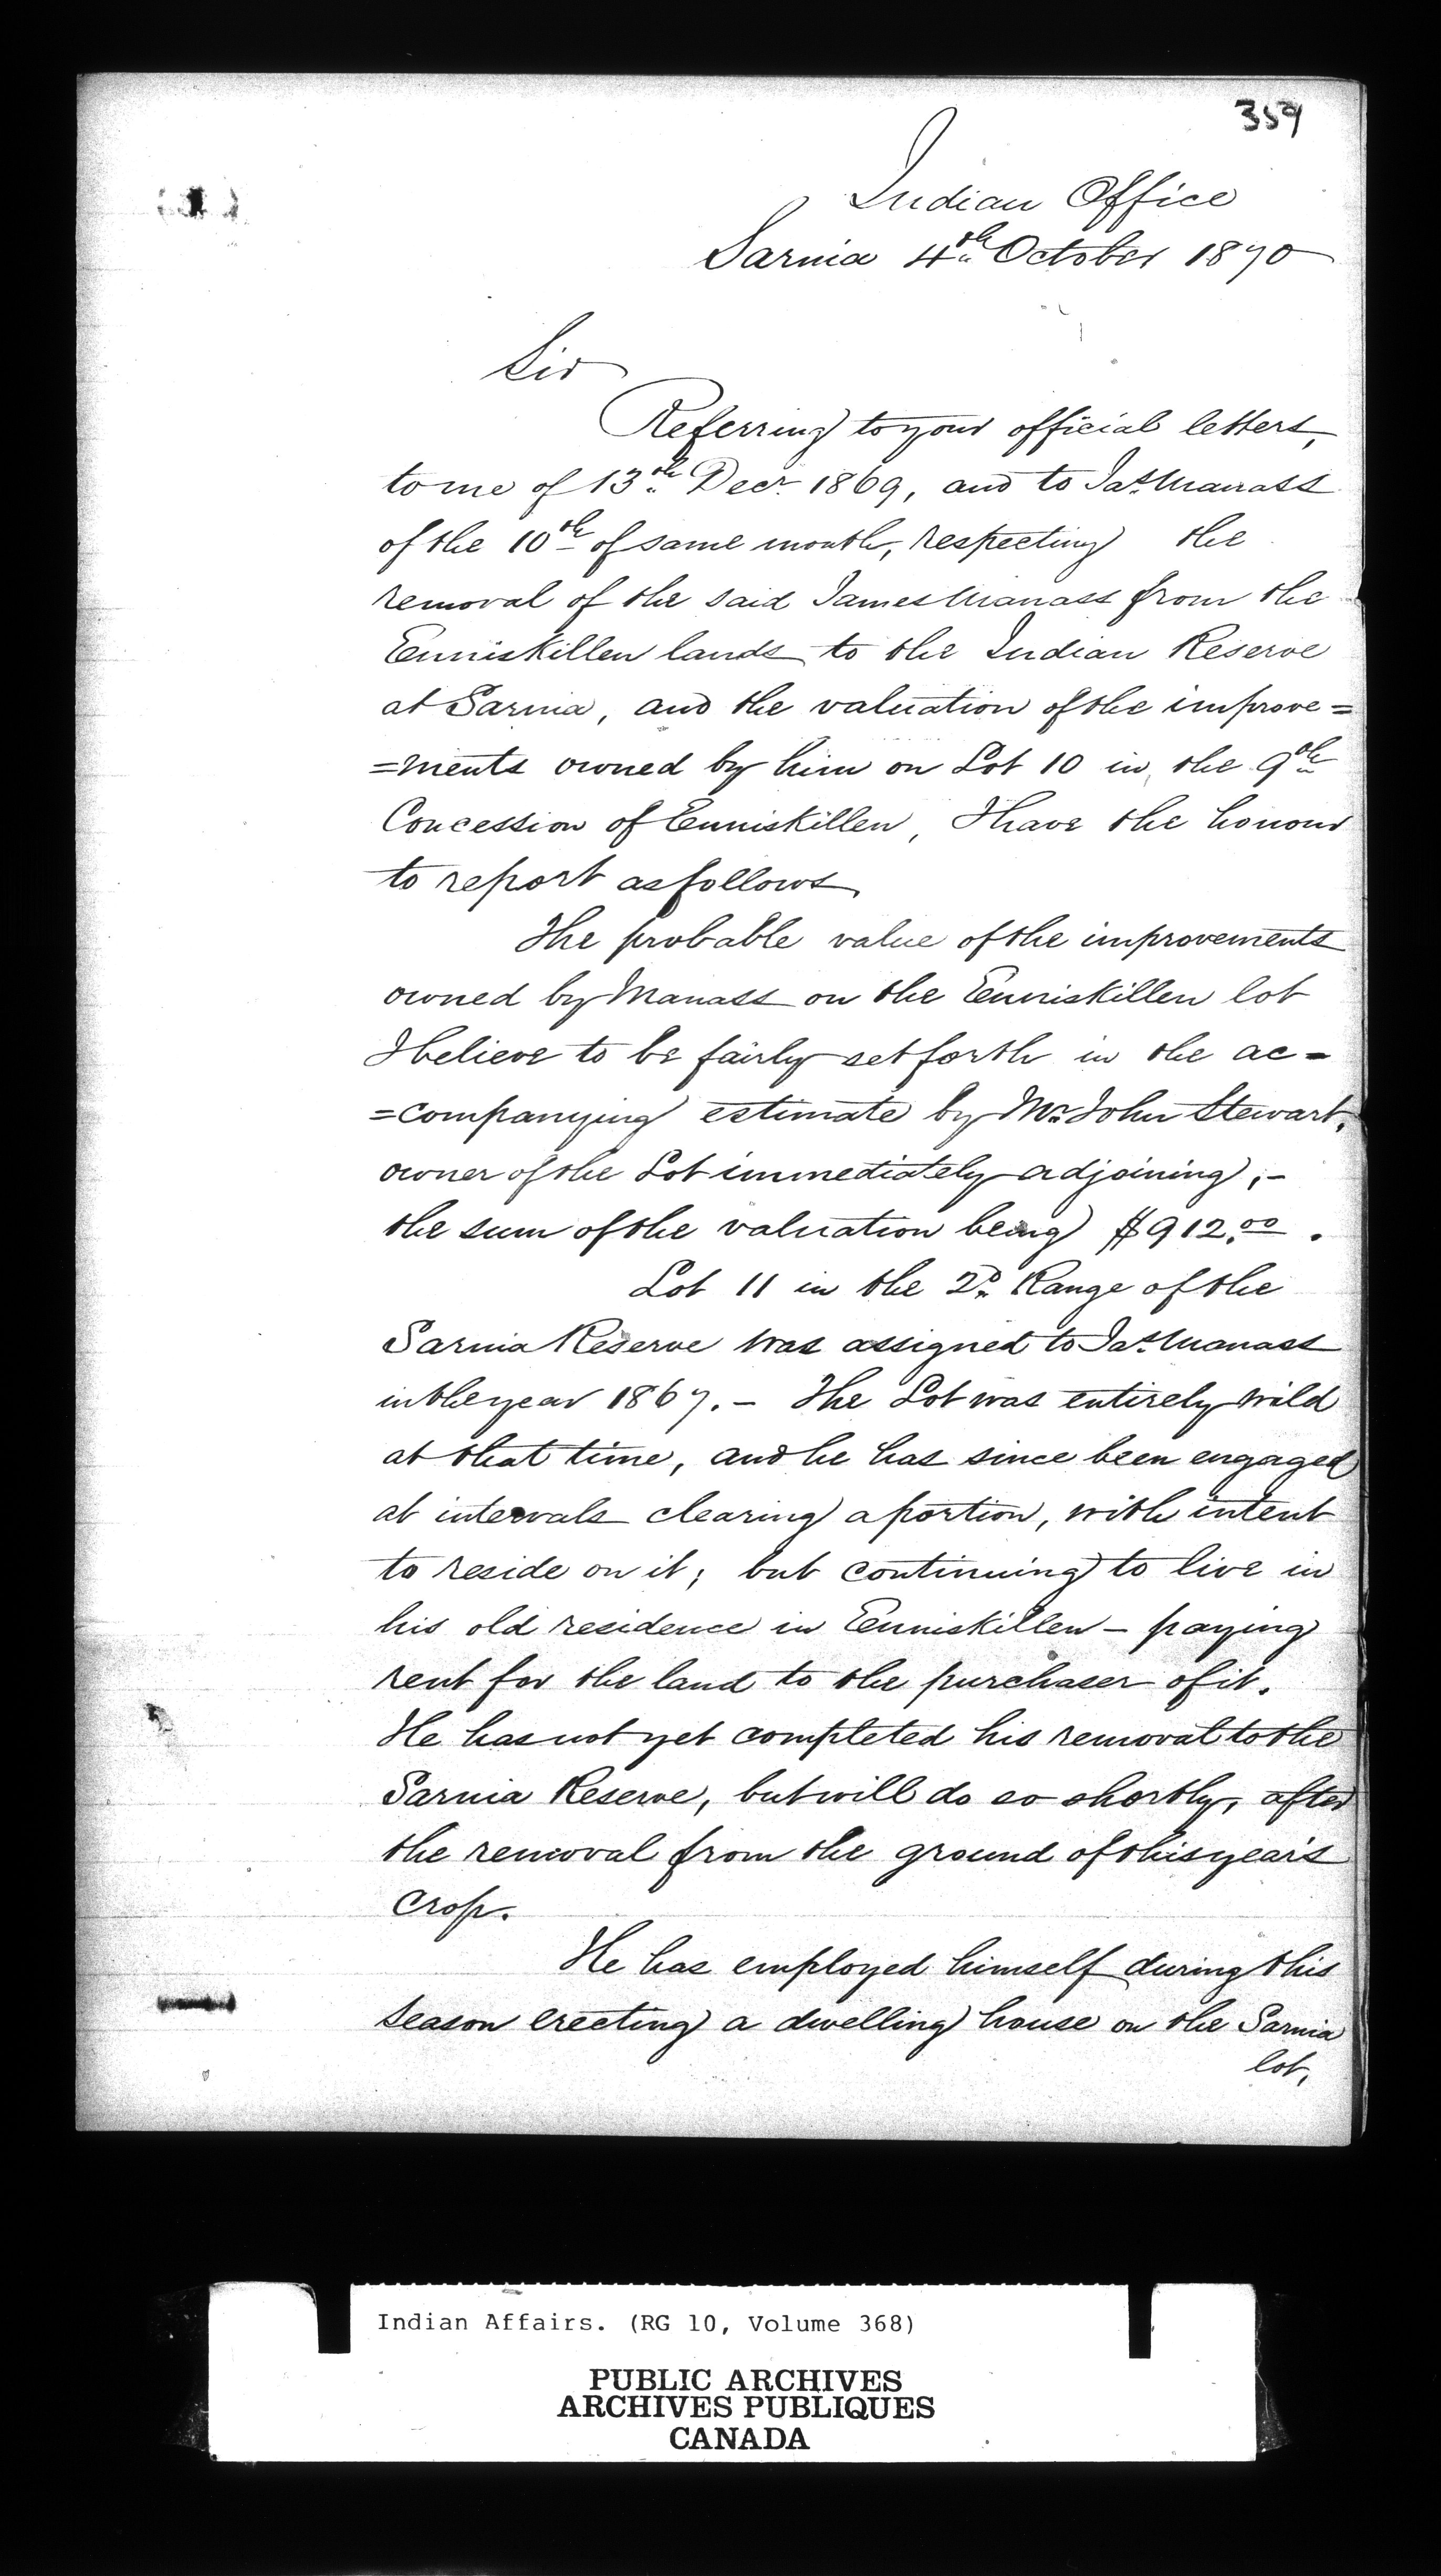 359
Indian Office
Sarnia 4th October 1870
Sir
Referring to your official letters,
to me of 13th Decr 1869, and to Jas. Manass
of the 10th of same month, respecting the
removal of the said James Manass from the
Enniskillen lands to the Indian Reserve
at Sarnia, and the valuation of the improve=
=ments owned by him on Lot 10 in the 9th
Concession of Enniskillen, I have the honour
to report as follows
The probable value of the improvements
owned by Manass on the Enniskillen lot
I believe to be fairly set forth in the ac=
=companying estimate by Mr. John Stewart,
owner of the Lot immediately adjoining;-
the sum of the valuation being $912.00.
Lot 11 in the 2d. Range of the
Sarnia Reserve was assigned to Jas. Manass
in the year 1867. - The Lot was entirely wild
at that time, and he has since been engaged
at intervals clearing a portion, with intent
to reside on it; but continuing to live in
his old residence in Enniskillen - paying
rent for the land to the purchaser of it.
He has not yet completed his removal to the
Sarnia Reserve, but will do so shortly, after
the removal from the ground of this year's
crop.
He has employed himself during this
season erecting a dwelling house on the Sarnia
lot,
Indian Affairs. (RG 10, Volume 368)
PUBLIC ARCHIVES
ARCHIVES PUBLIQUES
CANADA